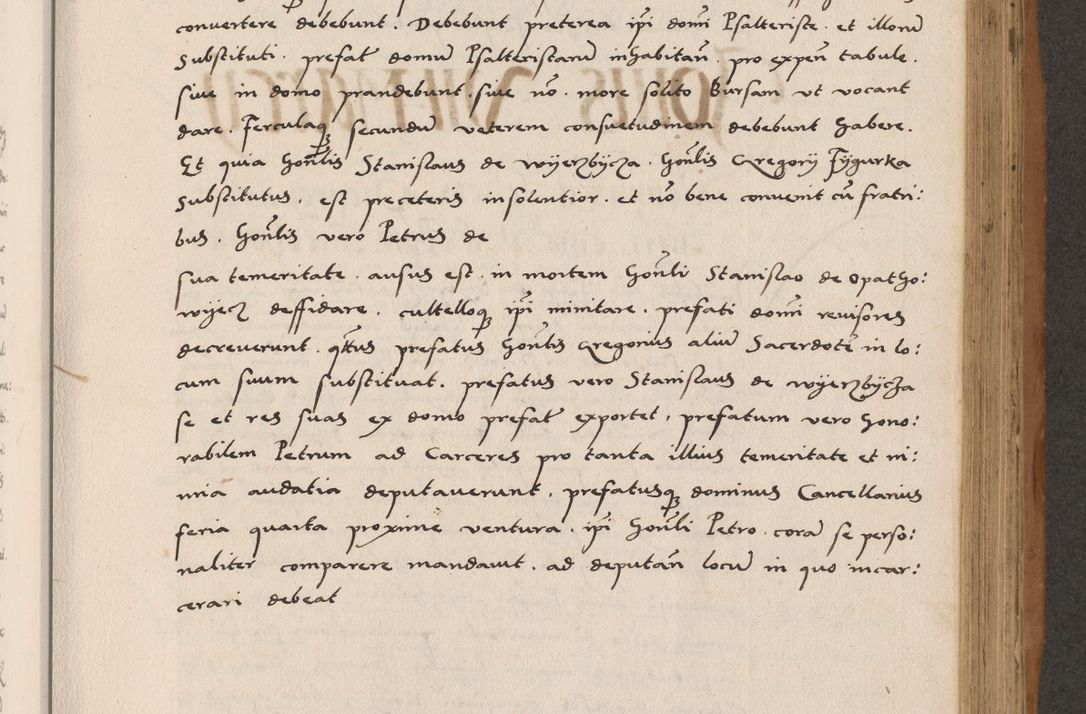 convertere debebunt. Debebunt preterea ip̄i domī Psalteriste. et illorū
Substituti. prefat̄ domū Psalteristarū inhabitan̄. pro expen̄ tabule.
sive in domo prandebunt. sive nō. more solito Bursam ut vocant
dare. Ferculaq; secundū veterem consuetudinem debebunt habere.
Et quia Hon̄lis Stanislaus de wyerzbycza. Hon̄lis Gregorij Fygurka
Substitutus. est preceteris insolentior. et nō bene convenit cū fratri:
bus. Hon̄lis vero Petrus de
sua temeritate. ausus est. in mortem Hon̄li Stanislao de Opatho:
wyecz deffidare. cultelloq; ip̄i minitare. prefati domī revisores
decreverunt. qtus prefatus Hon̄lis Gregorius aliū Sacerdotē in lo:
cum suum substituat. prefatus vero Stanislaus de wyerzbycza
se et res suas ex domo prefat̄ exportet. prefatum vero hono:
rabilem Petrum ad Carceres pro tanta illius temeritate et ni:
mia audatia deputaverunt. prefatusq; dominus Cancellarius
feria quarta proxime ventura. ip̄i Hon̄li Petro. corā se perso:
naliter comparere mandavit. ad deputan̄ locū in quo incar:
cerari debeat